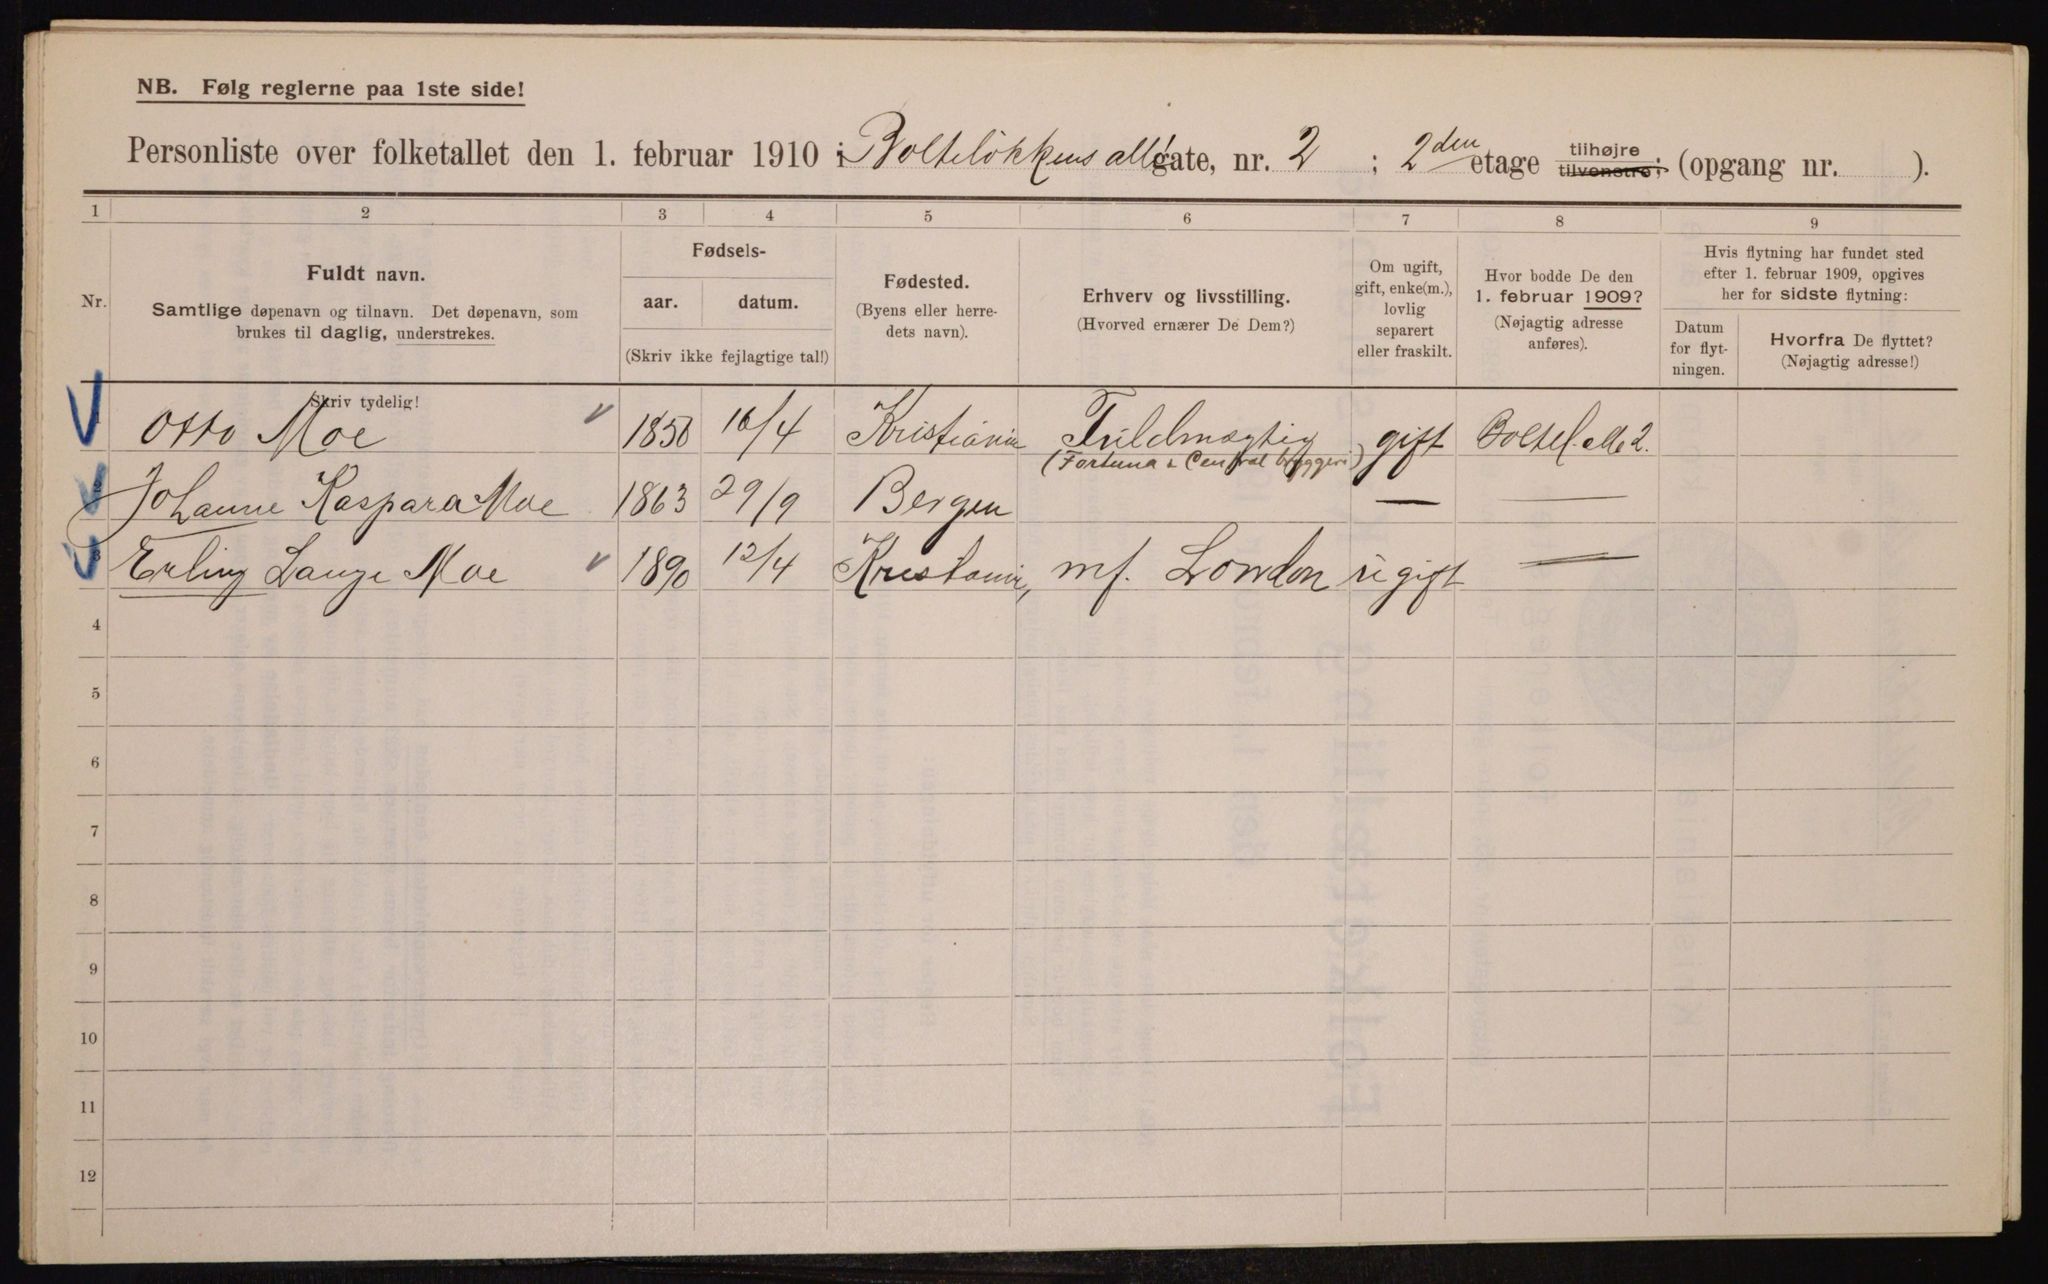 NB. Følg reglerne paa 1ste side!
Personliste over folketallet den 1. februar 1910 i Bolteløkkens allé gate, nr. 2 ; 2den etage tilhøjre tilvenstre; (opgang nr. ).
1 2 3 4 5 6 7 8 9
Nr.
Fuldt navn.
Samtlige døpenavn og tilnavn. Det døpenavn, som
brukes til daglig, understrekes.
Skriv tydelig!
Fødsels-
aar. datum.
(Skriv ikke fejlagtige tal!)
Fødested.
(Byens eller herre-
dets navn).
Erhverv og livsstilling.
(Hvorved ernærer De Dem?)
Om ugift,
gift, enke(m.),
lovlig
separert
eller fraskilt.
Hvor bodde De den
1. februar 1909?
(Nøjagtig adresse
anføres).
Hvis flytning har fundet sted
efter 1. februar 1909, opgives
her for sidste flytning:
Datum
for flyt-
ningen.
Hvorfra De flyttet?
(Nøjagtig adresse!)
Otto Moe 1850 16/4 Kristiania Fuldmægtig gift Boltel. alle 2.
(Fortuna & Central bryggeri)
2 Johanne Kaspara Moe 1863 29/9 Bergen — —
3 Erling Lange Moe 1890 12/4 Kristiania, mf. London ugift —
4
5
6
7
8
9
10
11
12